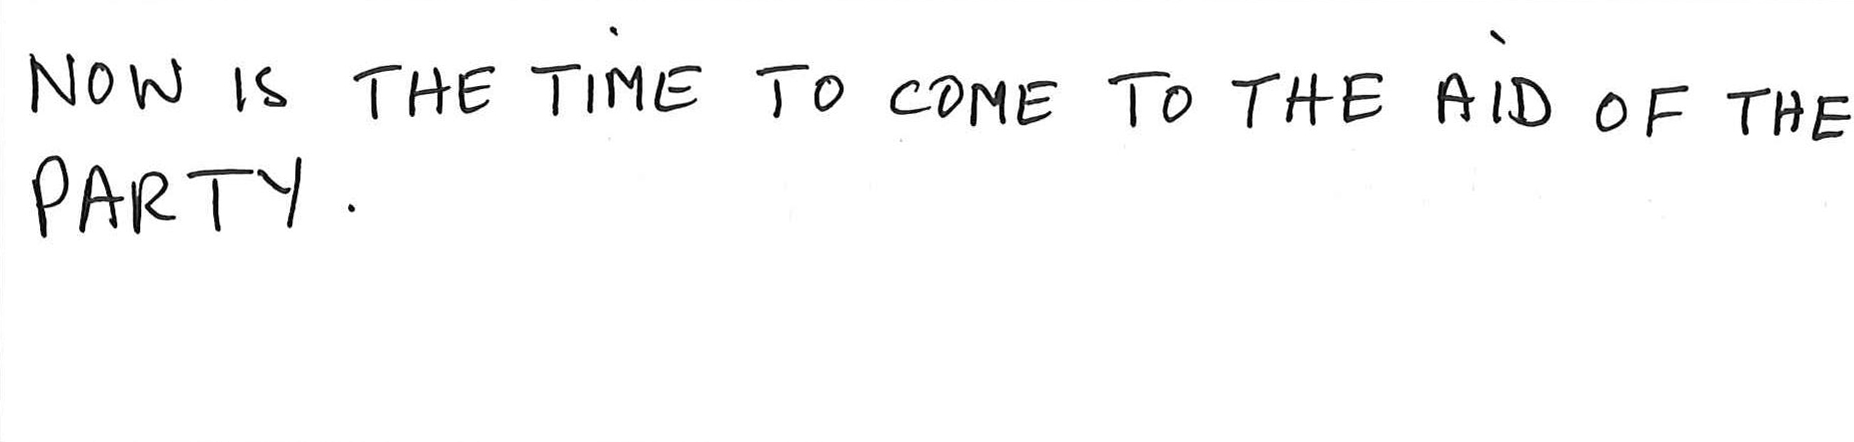 NOW IS THE TIME TO COME TO THE AID OF THE
PARTY.